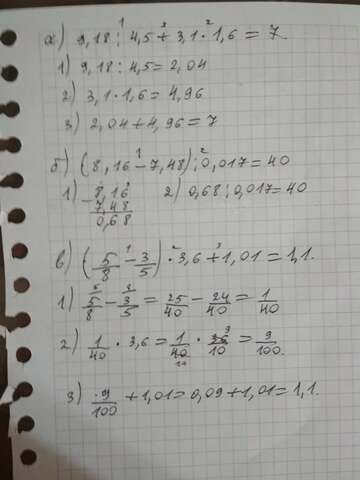 а) 9,18 : 4,5 + 3,1 · 1,6 = 7
1) 9,18 : 4,5 = 2,04
2) 3,1 · 1,6 = 4,96
3) 2,04 + 4,96 = 7
б) (8,16 - 7,48) : 0,017 = 40
1) - 8,16 2) 0,68 : 0,017 = 40
7,48
0,68
в) (5/8 - 3/5) · 3,6 + 1,01 = 1,1.
1) 5/8 - 3/5 = 25/40 - 24/40 = 1/40
2) 1/40 · 3,6 = 1/40 · 36/10 = 9/100.
3) 9/100 + 1,01 = 0,09 + 1,01 = 1,1.